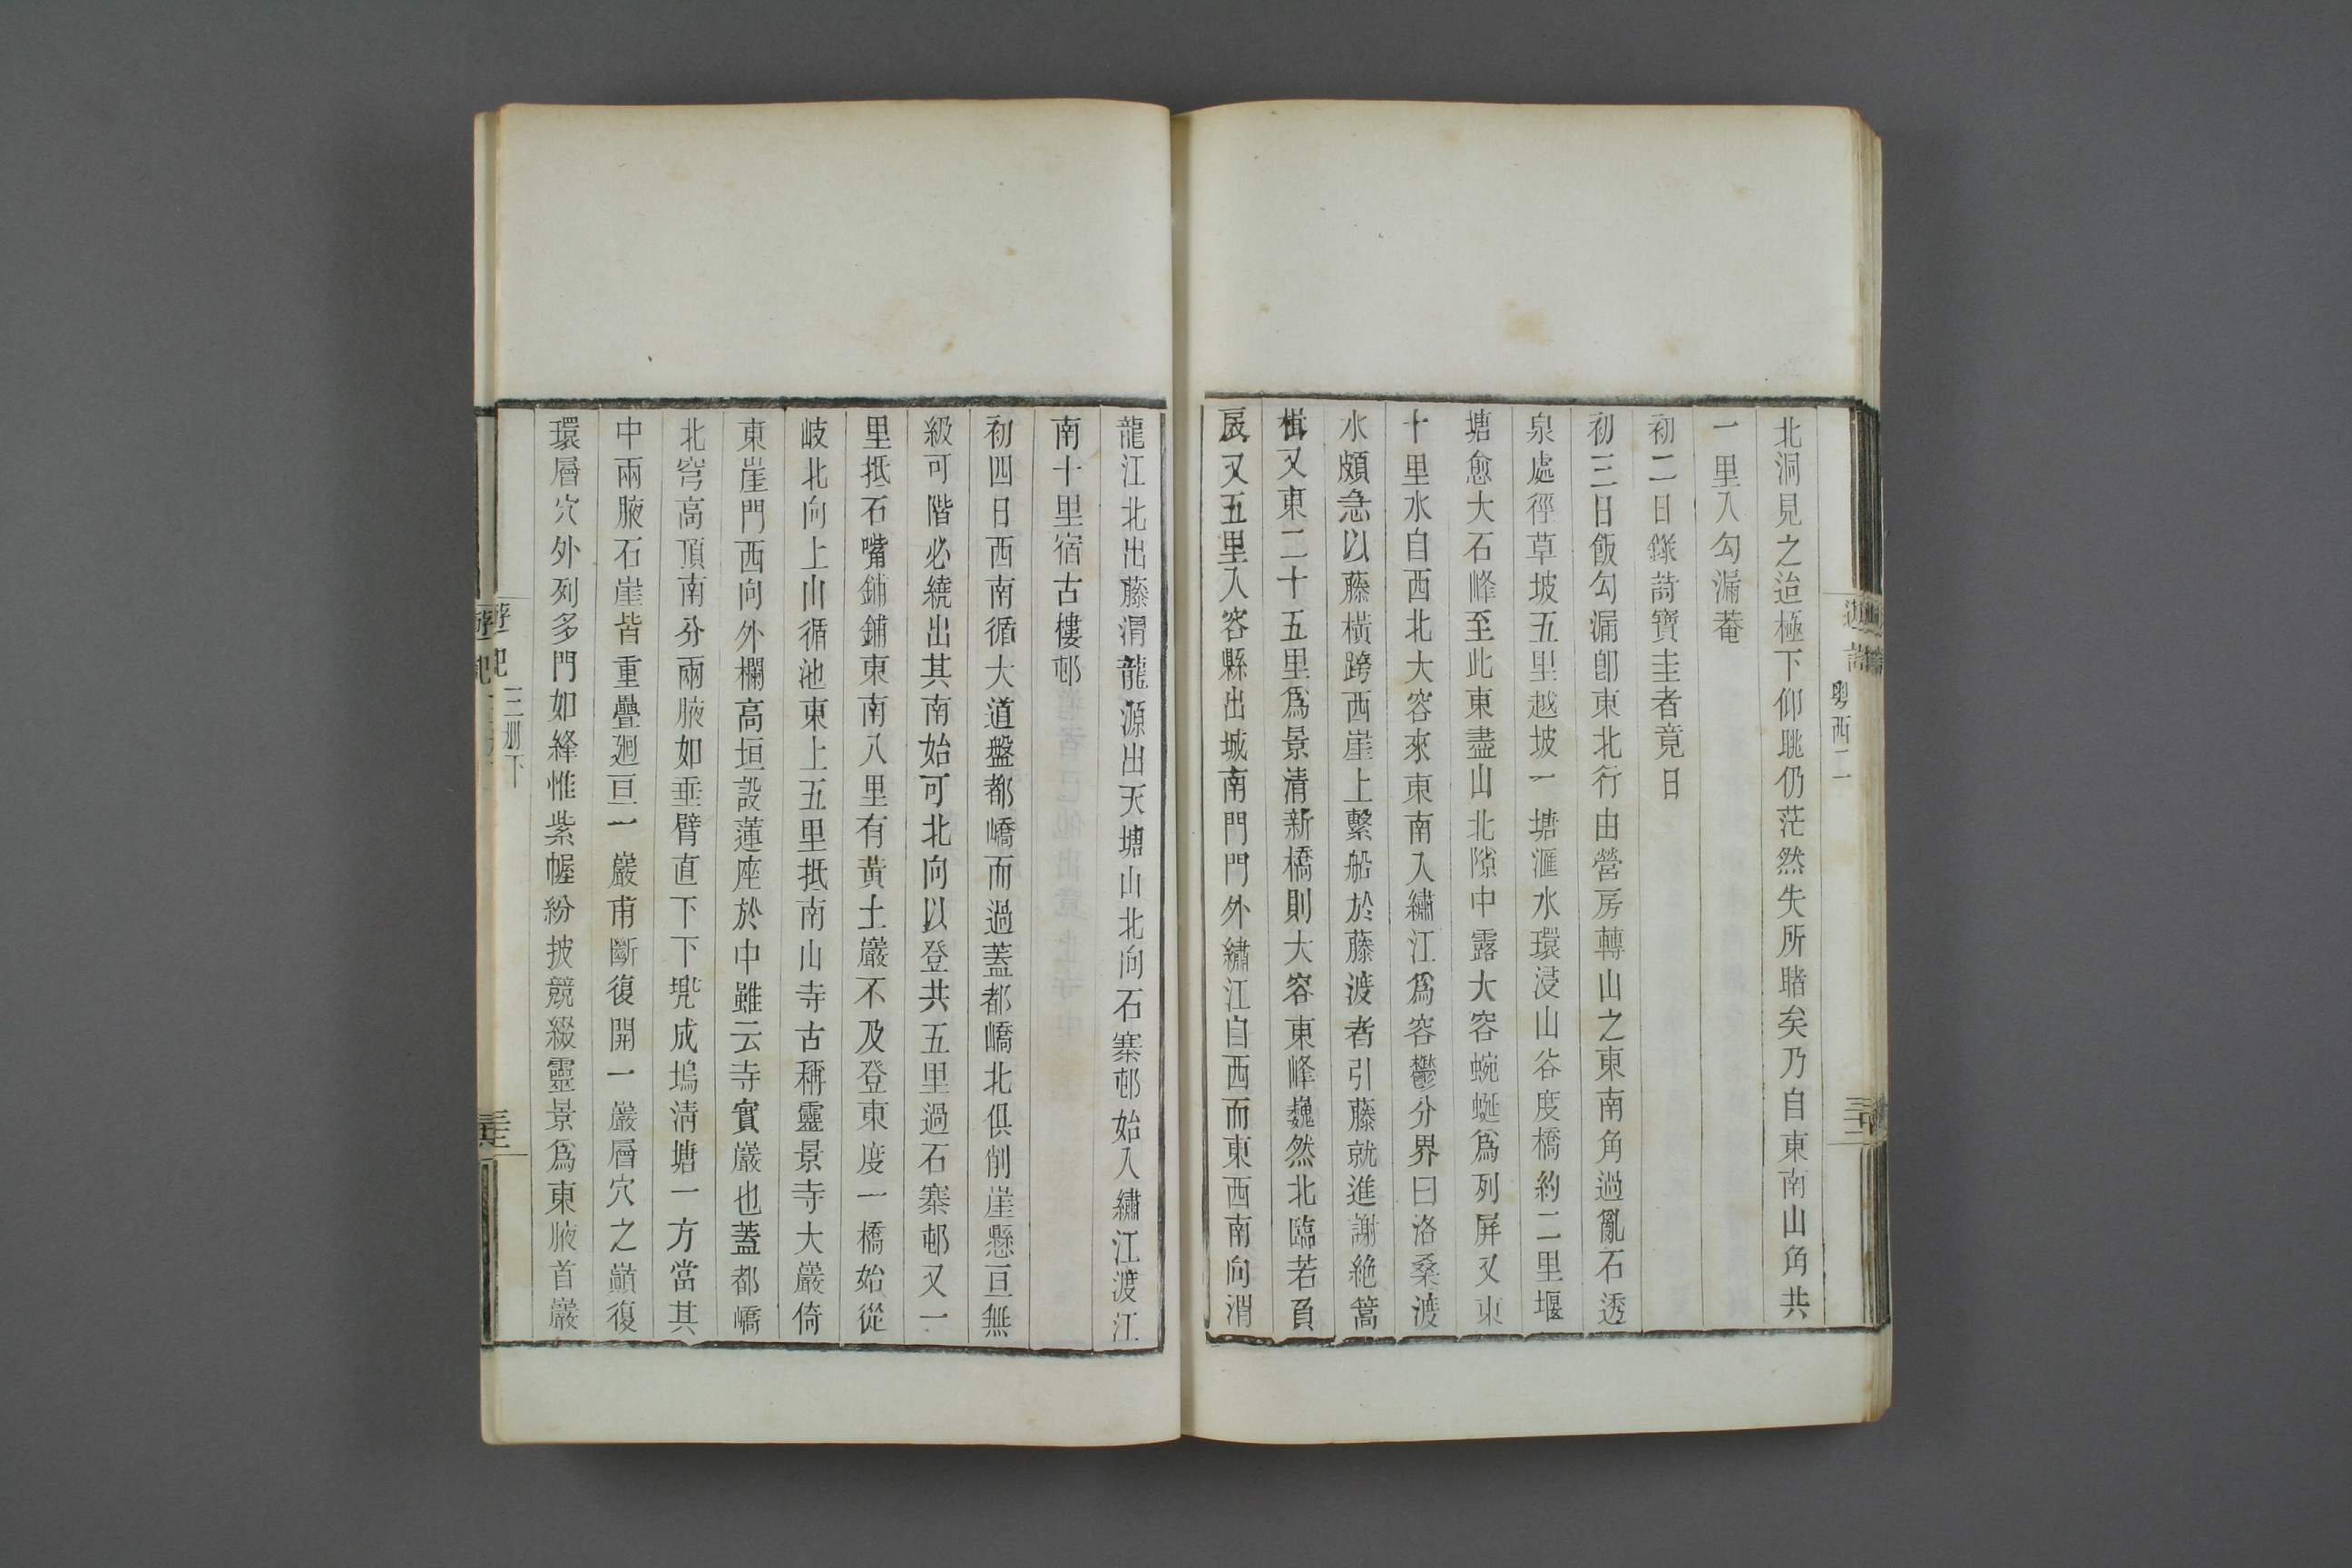 北洞見之迨極下仰眺仍茫然失所睹矣乃自東南山角共
一里入勾漏菴
初二日錄詩寶圭者竟日
初三日飯勾漏卽東北行由營房轉山之東南角過亂石透
泉處徑草坡五里越坡一塘滙水環浸山谷度橋約二里堰
塘愈大石峰至此東盡山北隙中露大容蜿蜒爲列屏又東
十里水自西北大容來東南入繡江爲容鬱分界曰洛桑渡
水頗急以藤橫跨西崖上繫船於藤渡者引藤就進謝絶篙
楫又東二十五里爲景清新橋則大容東峰巍然北臨若負
扆又五里入容縣出城南門門外繡江自西而東西南向渭
龍江北出藤渭龍源出天塘山北向石寨邨始入繡江渡江
南十里宿古樓邨
初四日西南循大道盤都嶠而過蓋都嶠北俱削崖懸亘無
級可階必繞出其南始可北向以登共五里過石寨邨又一
里抵石嘴鋪鋪東南八里有黃土巖不及登東度一橋始從
岐北向上山循池東上五里抵南山寺古稱靈景寺大巖倚
東崖門西向外欄高垣設蓮座於中雖云寺實巖也蓋都嶠
北穹高頂南分兩腋如垂臂直下下兜成塢淸塘一方當其
中兩腋石崖皆重疊廻亘一巖甫斷復開一巖層穴之巔復
環層穴外列多門如絳惟紫幄紛披競綴靈景爲東腋首巖
粤西二
遊記
三册下